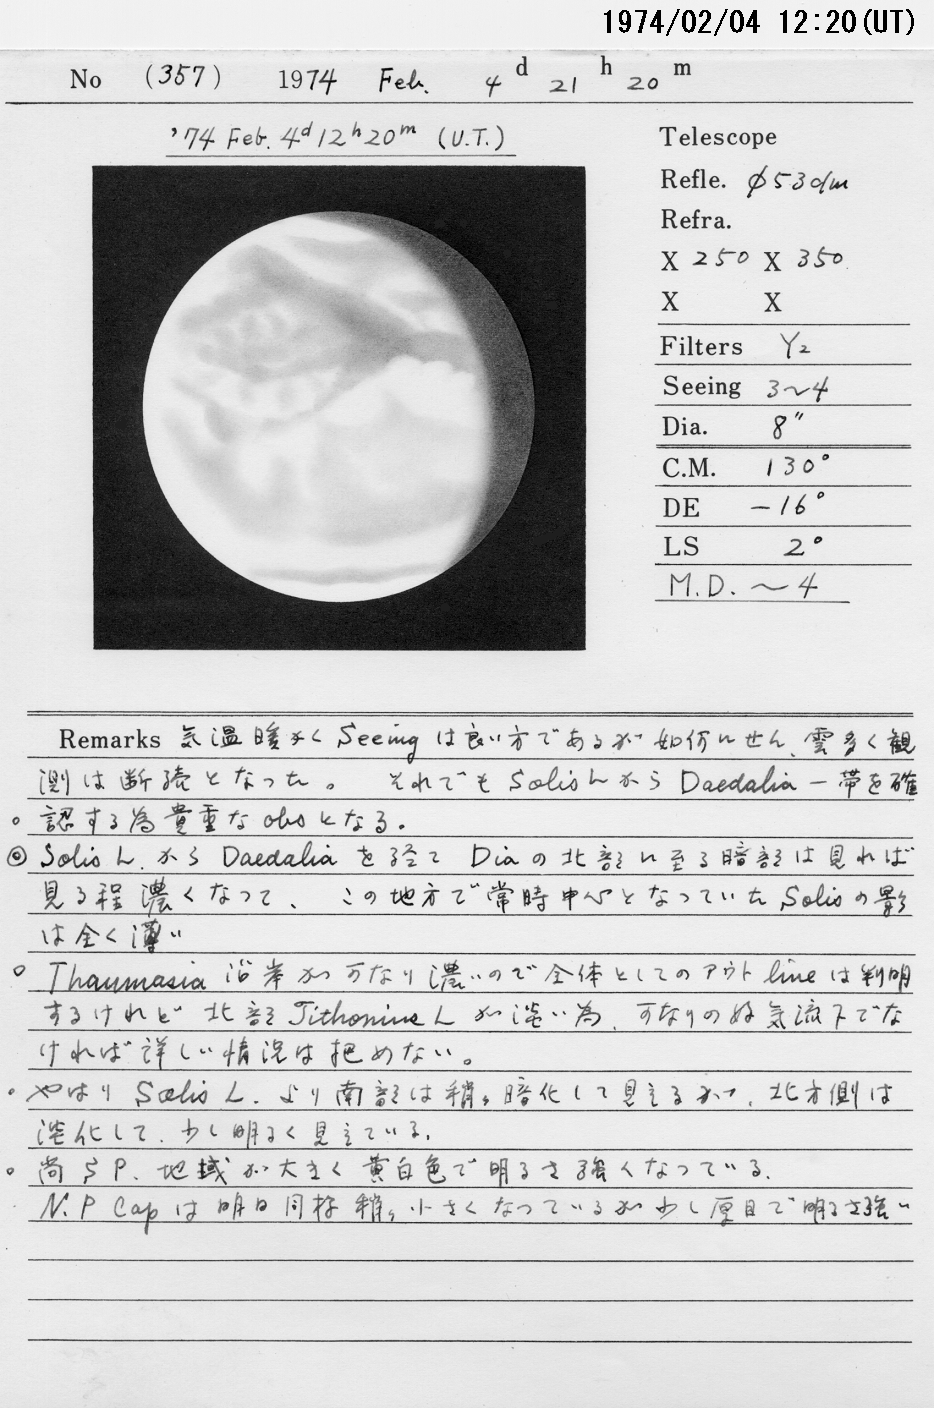 1974/02/04 12:20(UT)
No (357) 1974 Feb. 4 d 21 h 20 m
'74 Feb. 4d 12h 20m (U.T.)
Telescope
Refle. φ53cm
Refra.
X 250 X 350
X X
Filters Y2
Seeing 3~4
Dia. 8"
C.M. 130°
DE -16°
LS 2°
M.D. ~4
Remarks 気温暖かく Seeing は良い方であるが如何にせん、雲多く観
測は断続となった。 それでも Solis L から Daedalia 一帯を確
○ 認する為貴重な obs となる。
◎ Solis L. から Daedalia を経て Dia の北部に至る暗部は見れば
見る程濃くなって、この地方で常時中心となっていた Solis の影
は全く薄い
○ Thaumasia 沿岸が可なり濃いので全体としてのアウト line は判明
するけれど 北部 Tithonius L が淡い為、可なりの好気流下でな
ければ詳しい情況は把めない。
・やはり Solis L. より南部は稍々暗化して見えるが、北方側は
淡化して、少し明るく見えている。
○ 尚 S P. 地域が大きく黄白色で明るさ強くなっている。
N.P Cap は 明日同様稍々小さくなっているが少し厚目で明るさ強い